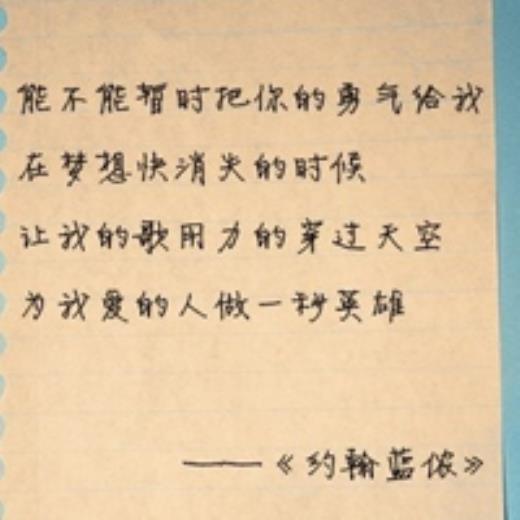 能不能暂时把你的勇气给我
在梦想快消失的时候
让我的歌用力的穿过天空
为我爱的人做一秒英雄
——《约翰蓝侬》